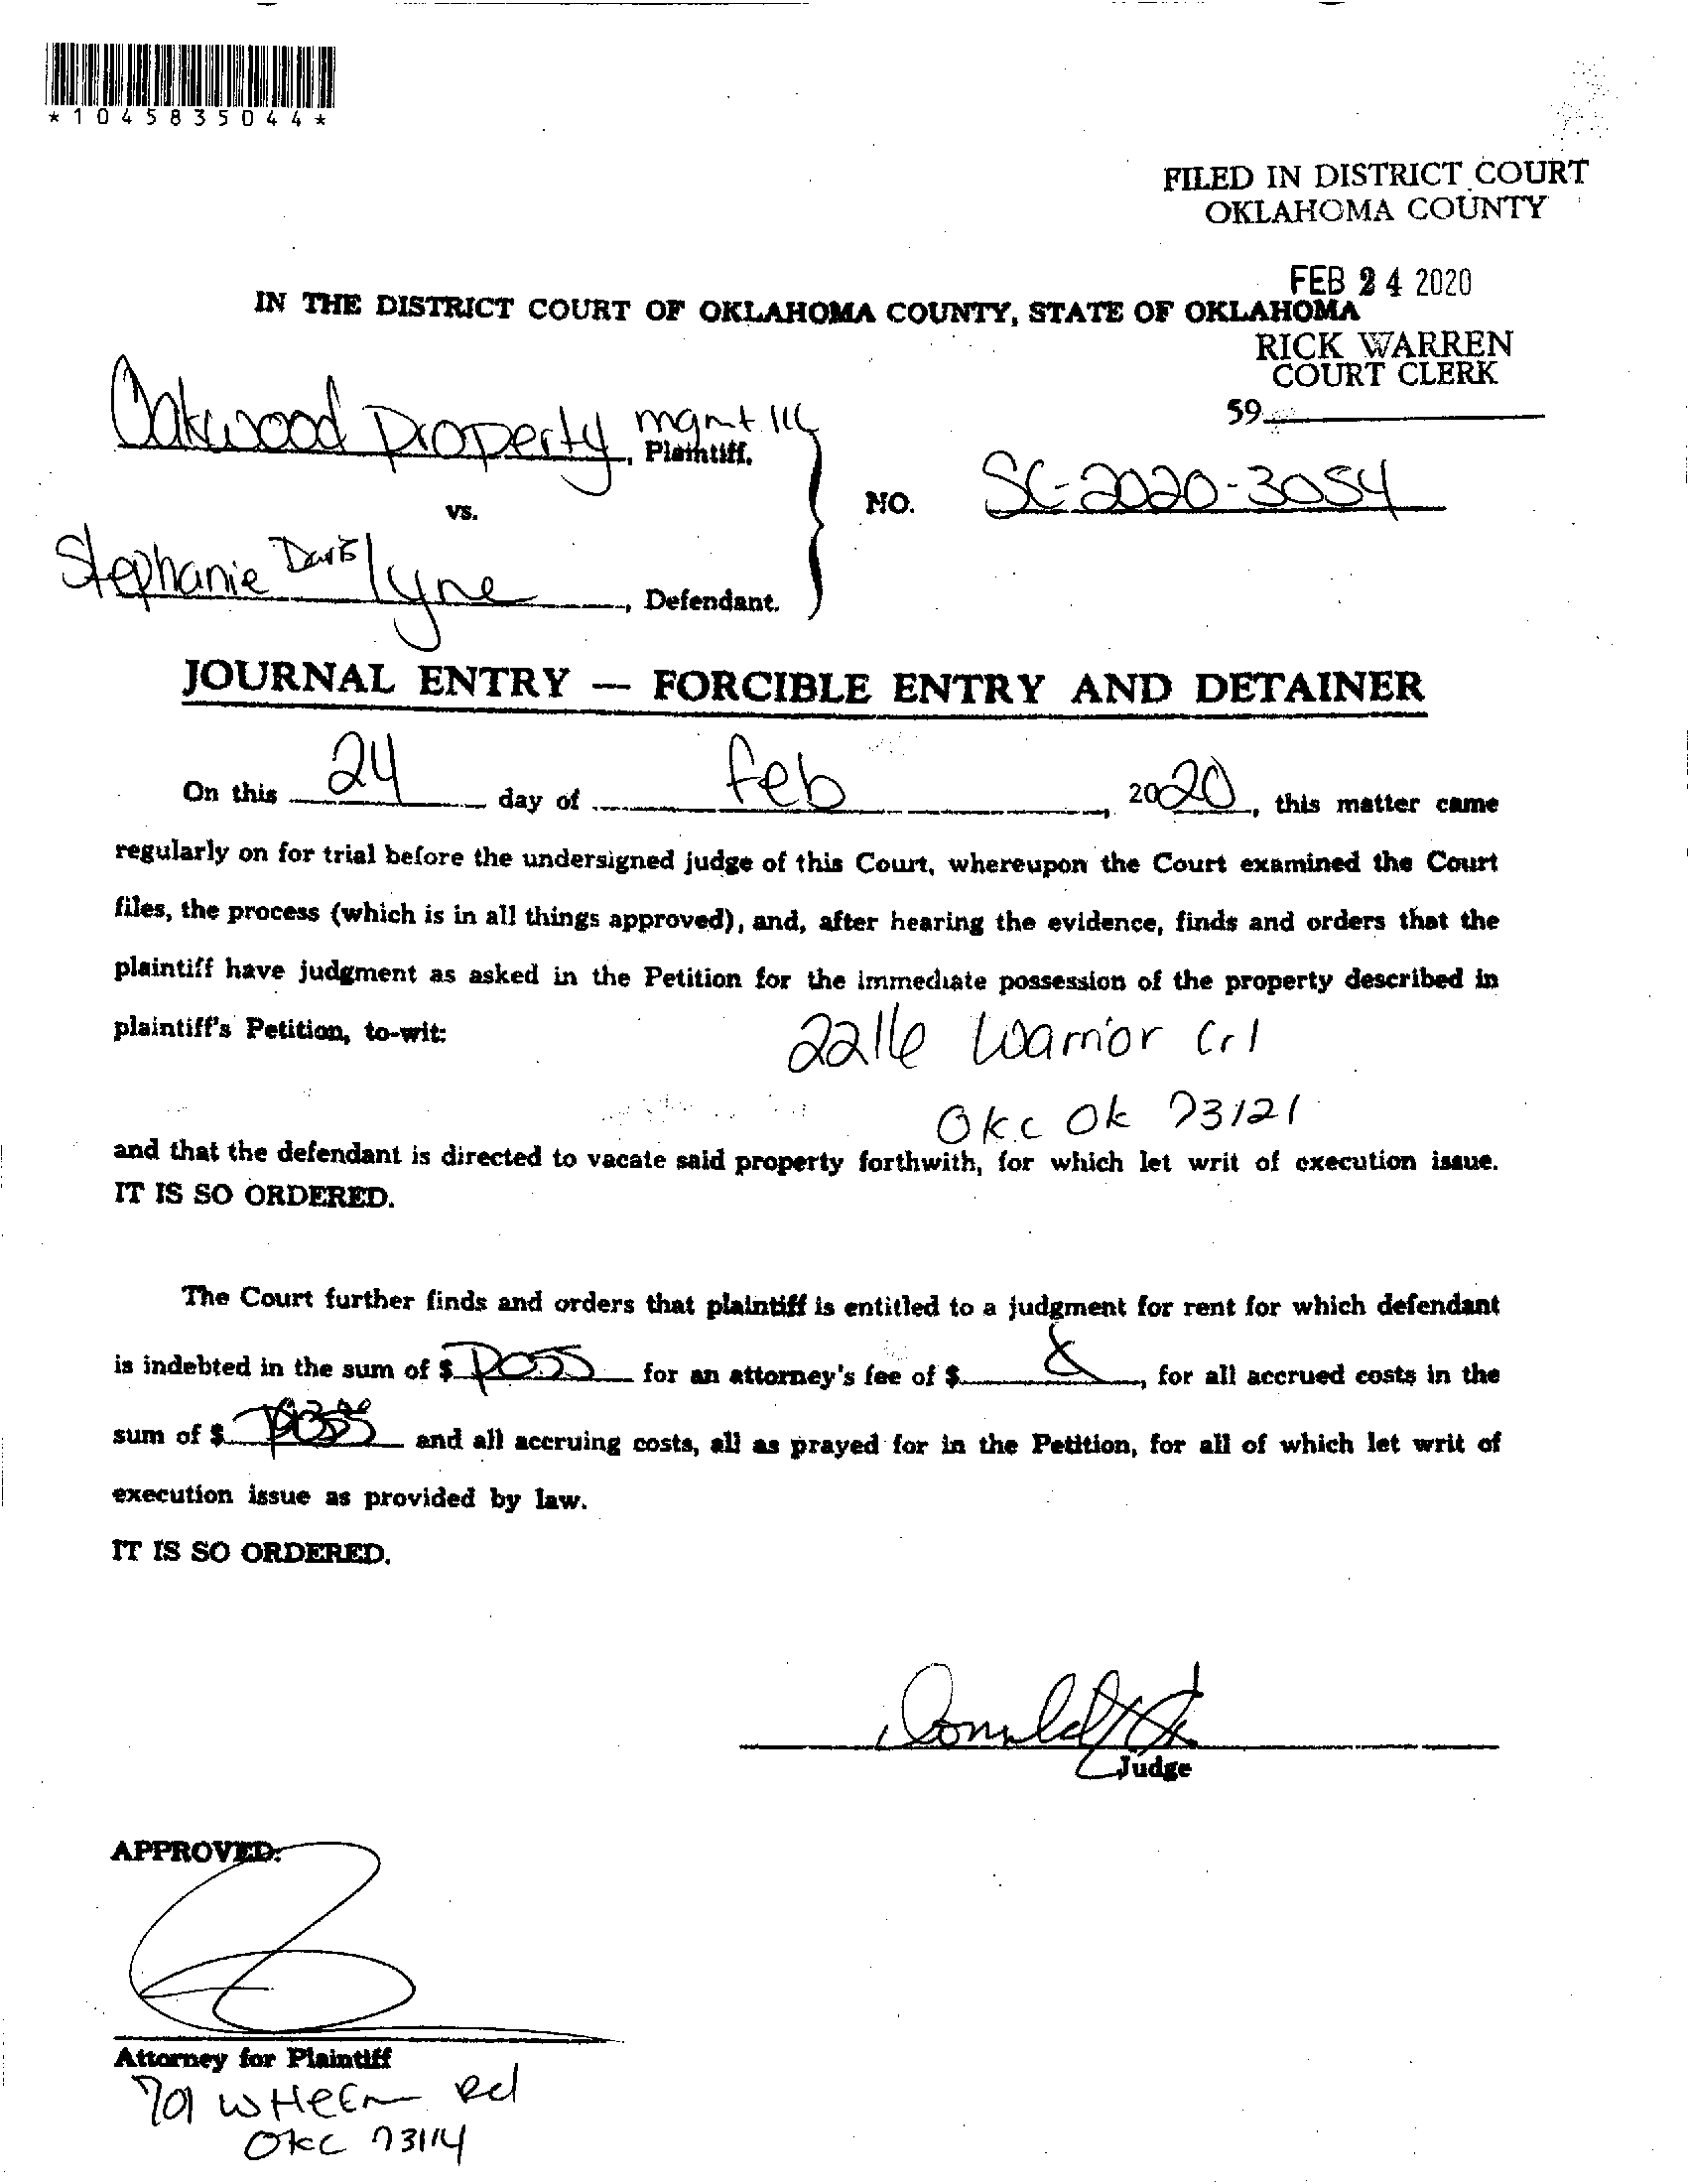 *1045835044*
FILED IN DISTRICT COURT
OKLAHOMA COUNTY
FEB 24 2020
IN THE DISTRICT COURT OF OKLAHOMA COUNTY, STATE OF OKLAHOMA
RICK WARREN
COURT CLERK
59
Oakwood Property mgmt llc
, Plaintiff,
vs.
NO. SC-2020-3054
Stephanie Davis lyne
, Defendant.
JOURNAL ENTRY — FORCIBLE ENTRY AND DETAINER
On this 24 day of feb, 2020, this matter came
regularly on for trial before the undersigned judge of this Court, whereupon the Court examined the Court
files, the process (which is in all things approved), and, after hearing the evidence, finds and orders that the
plaintiff have judgment as asked in the Petition for the immediate possession of the property described in
plaintiff's Petition, to-wit: 2216 Warrior Crl
OKC OK 73121
and that the defendant is directed to vacate said property forthwith, for which let writ of execution issue.
IT IS SO ORDERED.
The Court further finds and orders that plaintiff is entitled to a judgment for rent for which defendant
is indebted in the sum of $ POSS for an attorney's fee of $ , for all accrued costs in the
sum of $ and all accruing costs, all as prayed for in the Petition, for all of which let writ of
execution issue as provided by law.
IT IS SO ORDERED.
Judge
APPROVED:
Attorney for Plaintiff
701 W Rd
OKC 73114